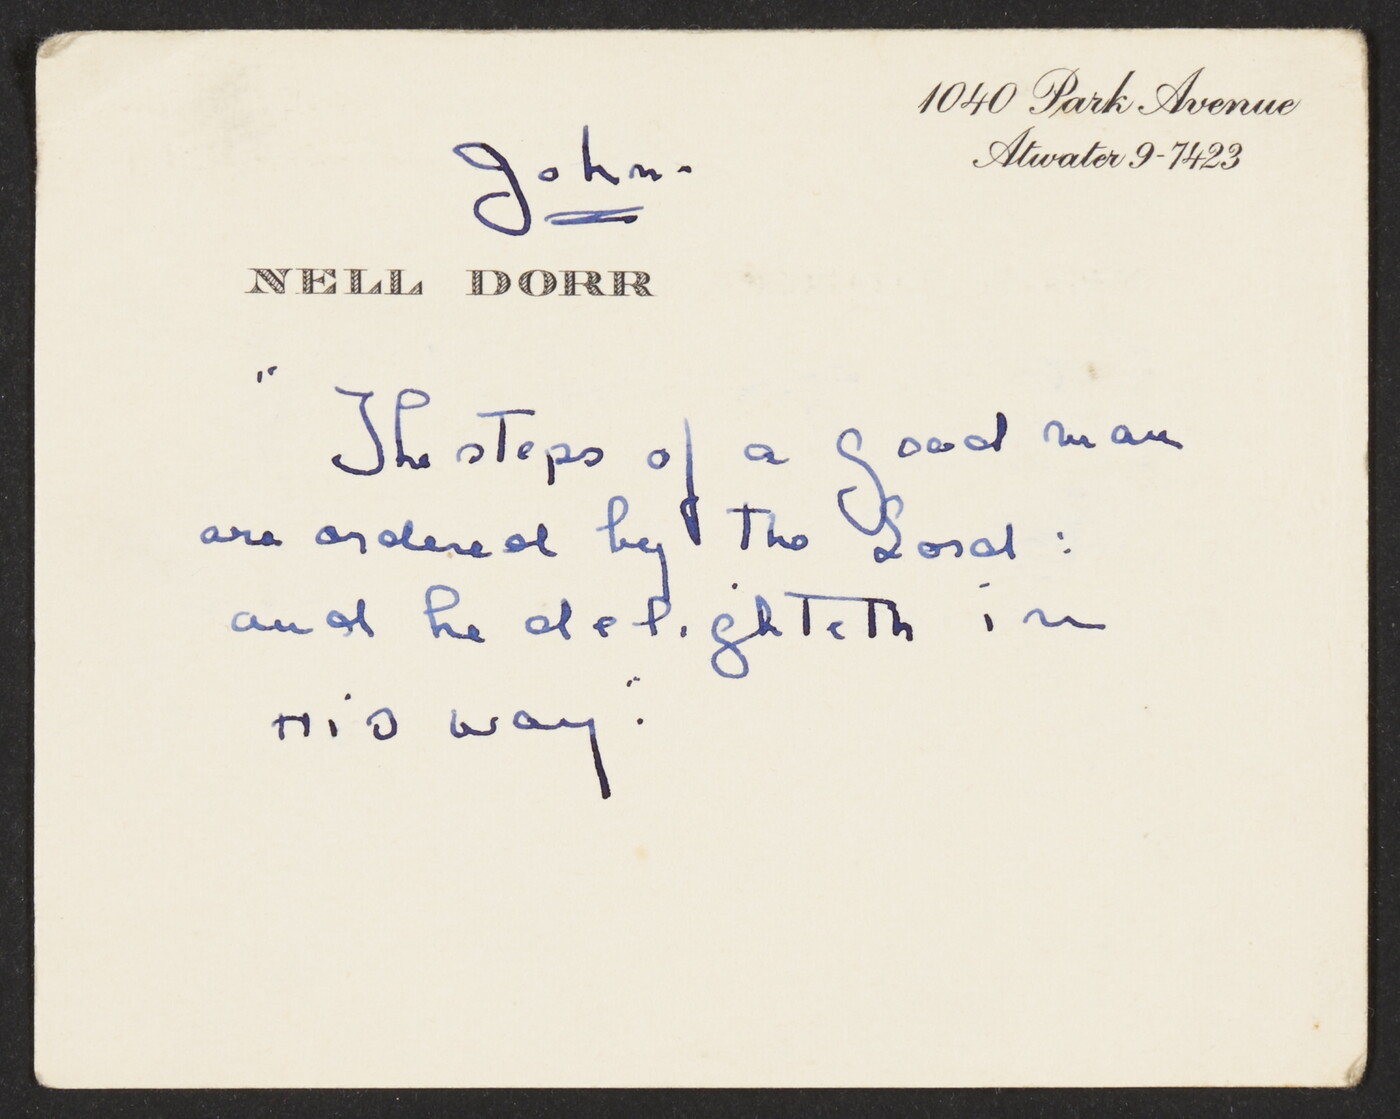 1040 Park Avenue
Atwater 9-7423
John.
NELL DORR
"The steps of a good man
are ordered by the Lord:
and he delighteth in
His way".